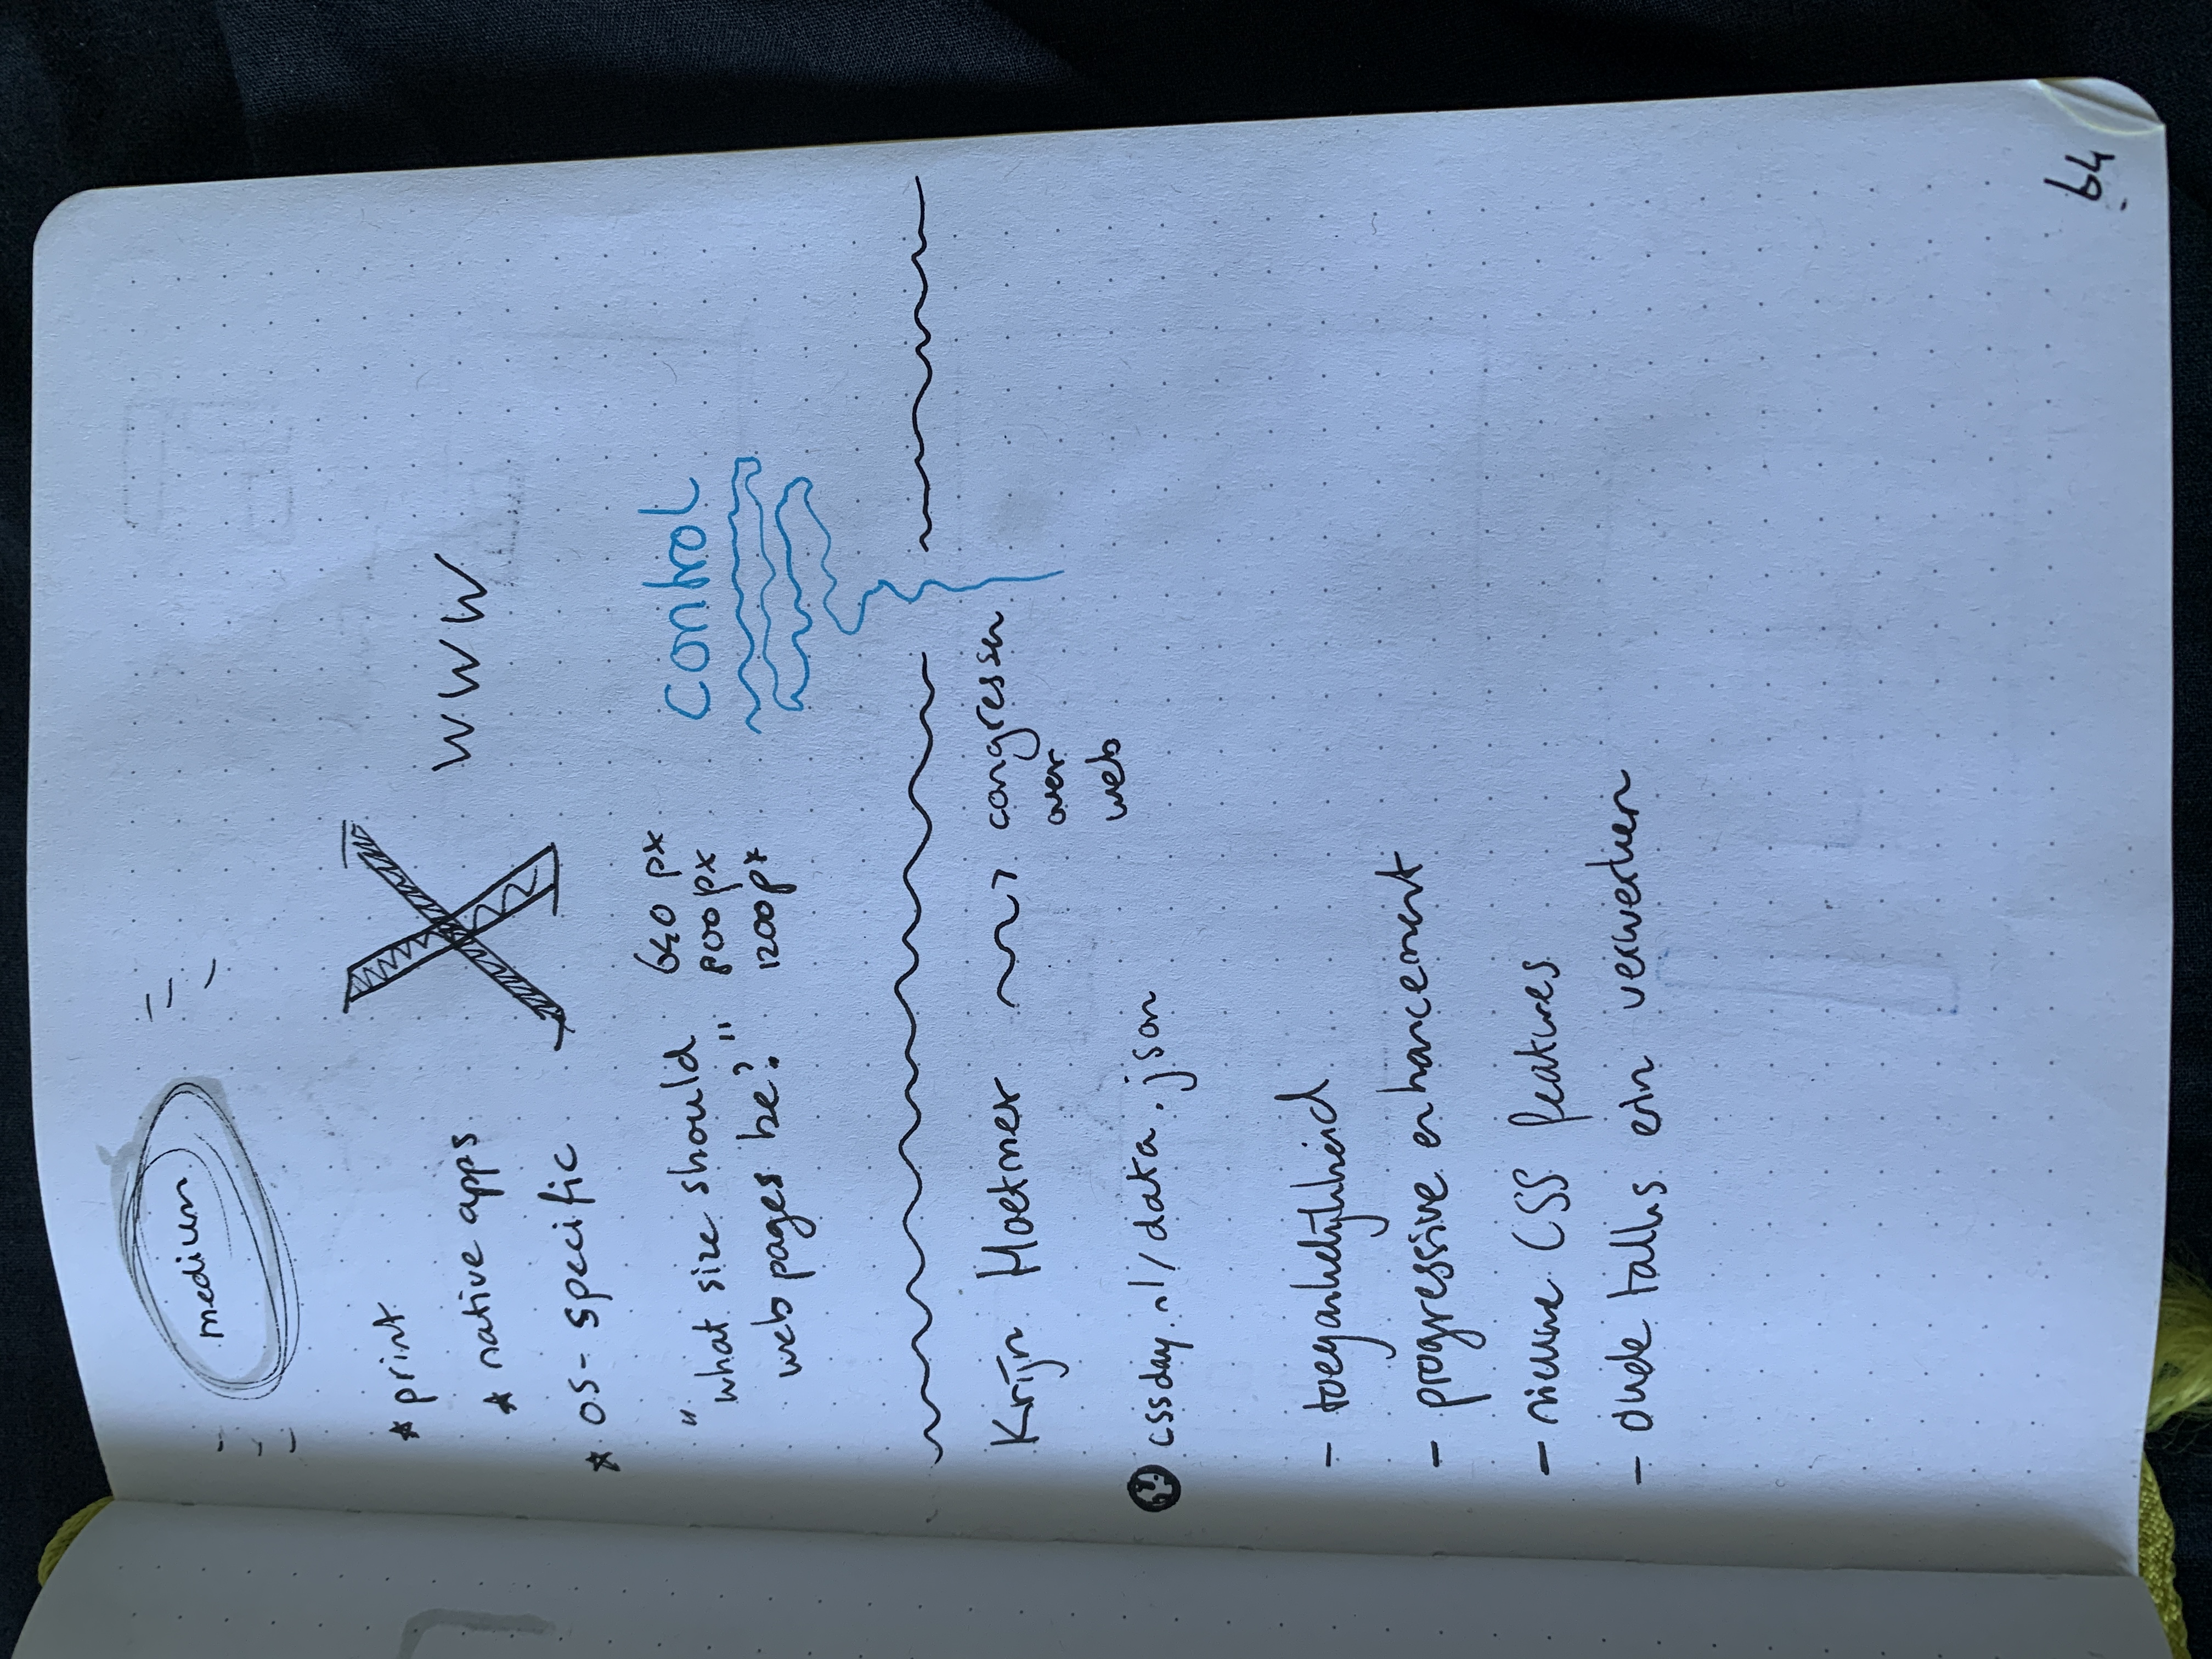 medium
* print
* native apps
* OS-specific
X
WWW
"what size should
web pages be?"
640 px
800px
1200px
control
Krijn Hoetmer ~~> congressen
over
web
cssday.nl/data.json
- toegankelijkheid
- progressive enhancement
- nieuwe CSS features
- oude talks erin verwerken
64